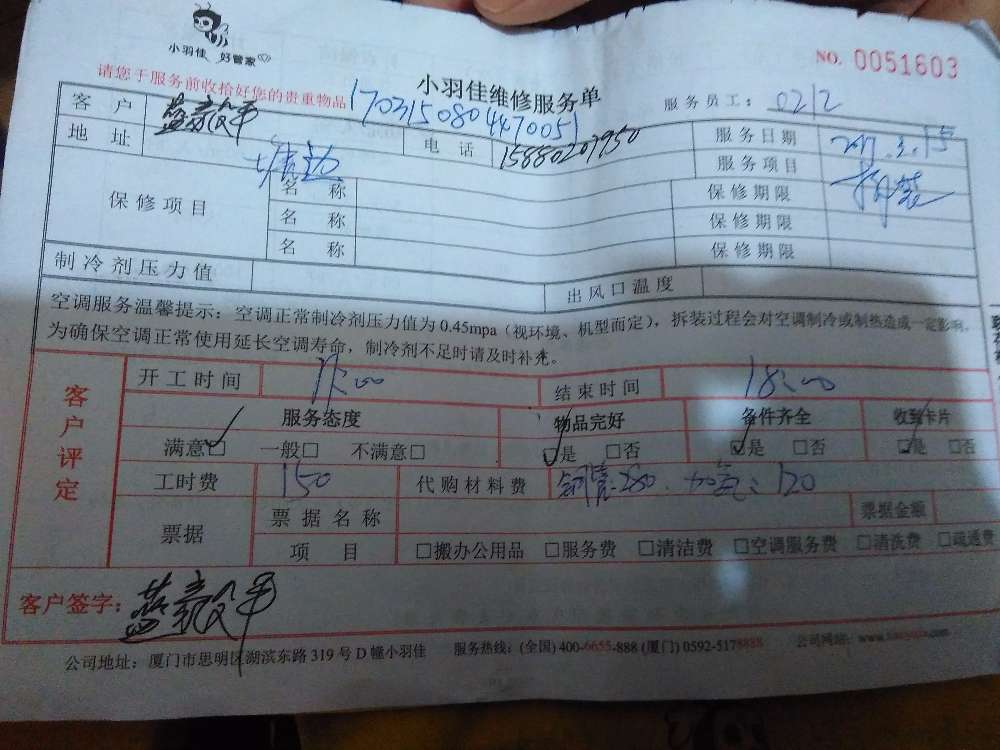 小羽佳 好管家
NO. 0051603
请您于服务前收拾好您的贵重物品
小羽佳维修服务单
1703150804470051
服务员工: 0212
客户
电话 15880207950
服务日期 2017.3.15
地址
服务项目 拆装
保修项目
名称 保修期限
名称 保修期限
名称 保修期限
制冷剂压力值 出风口温度
空调服务温馨提示：空调正常制冷剂压力值为0.45mpa（视环境、机型而定），拆装过程会对空调制冷或制热造成一定影响。
为确保空调正常使用延长空调寿命，制冷剂不足时请及时补充。
客户评定
开工时间 结束时间 18:00
服务态度 物品完好 备件齐全 收到卡片
满意□ 一般□ 不满意□ □是 □否 □是 □否 □是 □否
工时费 150 代购材料费 铜管:280. 加氟:120
票据 票据名称 票据金额
项目 □搬办公用品 □服务费 □清洁费 □空调服务费 □清洗费 □疏通费
客户签字：
公司地址：厦门市思明区湖滨东路 319 号 D 幢小羽佳 服务热线：(全国) 400-6655-888 (厦门) 0592-5178888 公司网站：